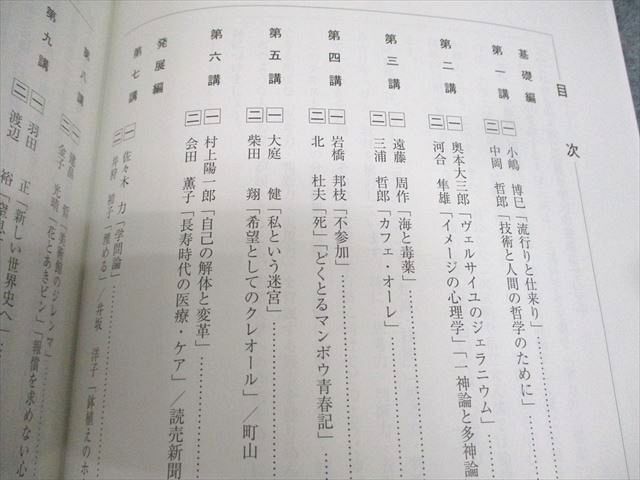 目次
基礎編
第一講
一 小嶋 博巳「流行りと仕来り」
二 中岡 哲郎「技術と人間の哲学のために」
第二講
一 奥本大三郎「ヴェルサイユのジェラニウム」
二 河合 隼雄「イメージの心理学」「一神論と多神論
第三講
一 遠藤 周作「海と毒薬」
二 三浦 哲郎「カフェ・オーレ」
第四講
一 岩橋 邦枝「不参加」
二 北 杜夫「死」「どくとるマンボウ青春記」
第五講
一 大庭 健「私という迷宮」
二 柴田 翔「希望としてのクレオール」／町山
第六講
一 村上陽一郎「自己の解体と変革」
二 会田 薫子「長寿時代の医療・ケア」／読売新聞
発展編
第七講
一 佐々木 力「学問論」
二 井狩 初子「埋める」／井坂 洋子「鉢植えのホ
第八講
一 哲「美術館のジレンマ」
二 金子 光晴「花とあきビン」「報償を求めない心
第九講
一 羽田 正「新しい世界史へ」
二 渡辺 裕